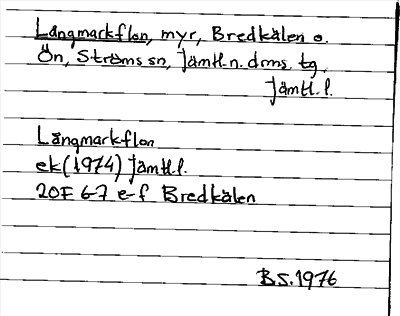 Långmarkflon, myr, Bredkälen o.
Ön, Ströms sn, Jämtl. n. doms. tg,
Jämtl. l.
Långmarkflon
ek (1974) Jämtl.
20F 6-7 e-f Bredkälen
B.S. 1976